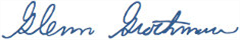 Glenn Grothman